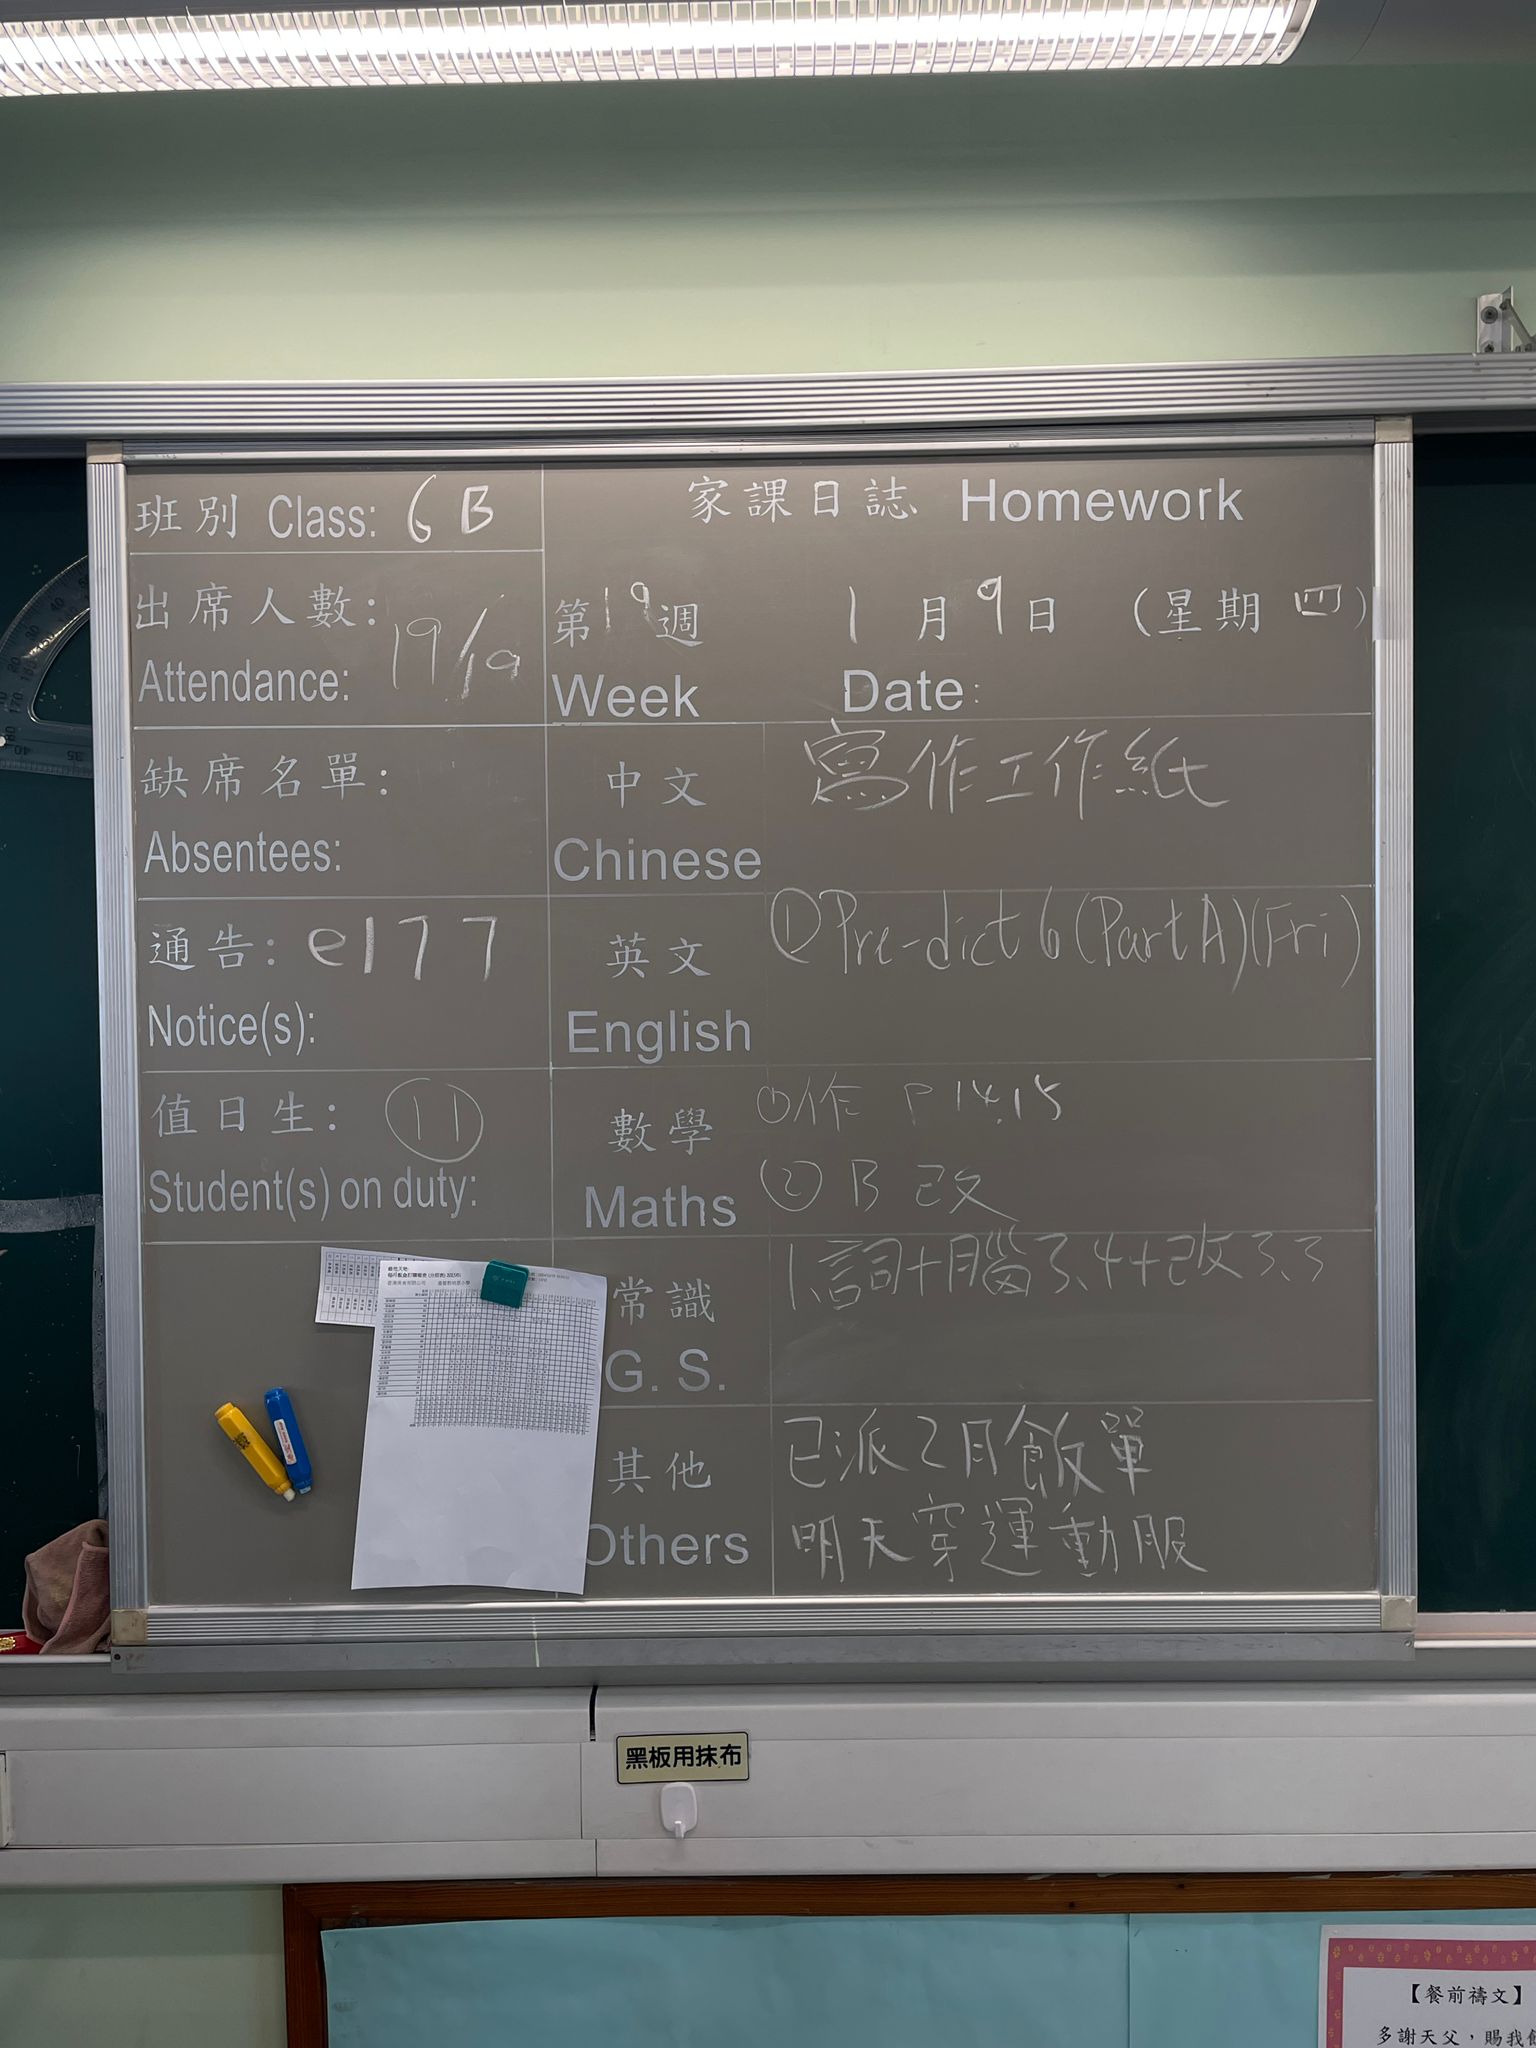 班別 Class: 6B
家課日誌 Homework
出席人數: 19/19
Attendance:
第19週 1月9日 (星期四)
Week Date:
缺席名單:
Absentees:
中文 寫作工作紙
Chinese
通告: e177
Notice(s):
英文 ①Pre-dict 6 (Part A)(Fri)
English
值日生: 11
Student(s) on duty:
數學 ①作 P14,15
Maths ② B 改
常識 1.詞+腦3.4+改3.3
G. S.
其他 已派2月飯單
Others 明天穿運動服
黑板用抹布
【餐前禱文】
多謝天父，賜我